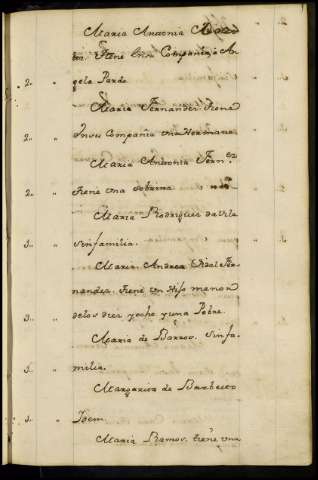 Maria Antonia
Tiene En su Compañia a An
2. " gela Parde
Maria Fernandez tiene
2. " En su Compañia una Hermana
Maria Antonia Fern.ez
2. " tiene una sobrina
Maria Rodriguez da Vila
1. " sin familia.
Maria Andrea Vidal Fer
nandez. tiene un Hijo menor
3. " delos diez y ocho y una Pobre
Maria de Barros. sinfa
1. " milia.
Margarita de Barbeito
1. " Idem.
Maria Ramos. tiene una